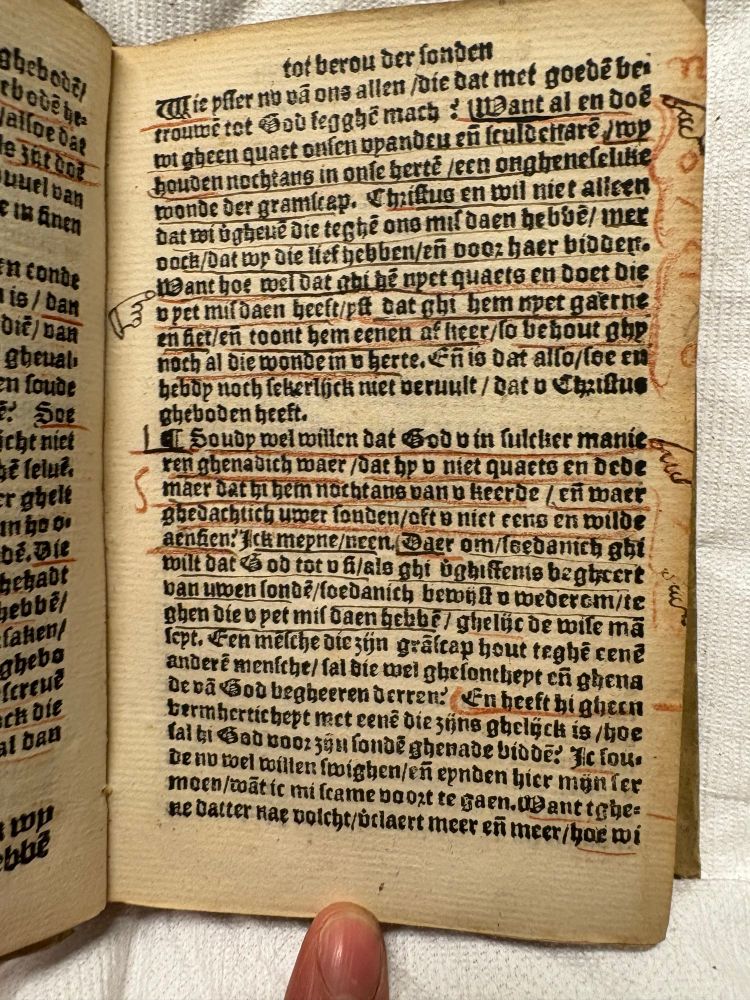 ghebodē/
erbodē he-
/alsoe dat
le zijt doē
uuel van
e in sinen
en conde
n is / dan
diē/ van
gheual-
en soude
ē? Soe
icht niet
hē seluē.
er ghelt
un hoo-
dē. Die
hehadt
hebbē/
saken/
ghebo
screuē
ock die
al dan
wy
ebbē
tot berou der sonden
Wie ysser nv vā ons allen /die dat met goedē be-
trouwē tot God segghē mach ? Want al en doē
wi gheen quaet onsen vyanden eñ sculdenarē/ wy
houden nochtans in onse hertē /een ongheneselike
wonde der gramscap. Christus en wil niet alleen
dat wi v̄gheuē die teghē ons misdaen hebbē/ mer
oock/dat wy die lief hebben/eñ voor haer bidden.
Want hoe wel dat ghi hē nyet quaets en doet die
v yet misdaen heeft/yst dat ghi hem nyet gaerne
en siet/eñ toont hem eenen afkeer/so behout ghy
noch al die wonde in v herte. Eñ is dat also/soe en
hebdy noch sekerlijck niet veruult / dat v Christus
gheboden heeft.
¶ Soudy wel willen dat God v in sulcker manie
ren ghenadich waer /dat hy v niet quaets en dede
maer dat hi hem nochtans van v keerde / eñ waer
ghedachtich uwer sonden/oft v niet eens en wilde
aensien? Ick meyne/neen. Daer om/soedanich ghi
wilt dat God tot v si/als ghi v̄ghiffenis begheert
van uwen sondē/soedanich bewijst v wederom/te
ghen die v yet misdaen hebbē/ ghelijc de wise mā
seyt. Een mēsche die zijn grāscap hout teghē eenē
anderē mensche/ sal die wel ghesontheyt eñ ghena
de vā God begheeren derren? En heeft hi gheen
vermhertichept met eenē die zijns ghelijck is /hoe
sal hi God voor zijn sondē ghenade biddē? Ic sou-
de nv wel willen swighen/eñ eynden hier mijn ser
moen/wāt ic mi scame voort te gaen. Want tghe-
ne datter nae volcht/v̄claert meer eñ meer/hoe wi